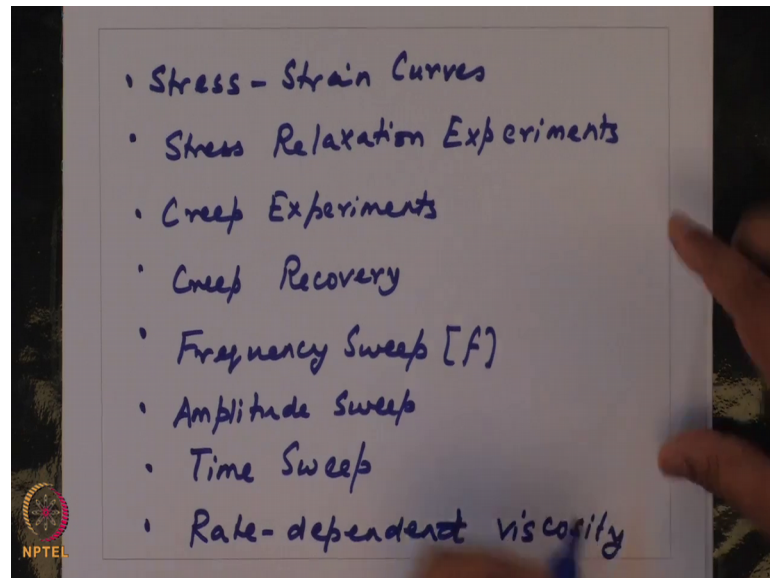 • Stress - Strain Curves
• Stress Relaxation Experiments
• Creep Experiments
• Creep Recovery
• Frequency Sweep [f]
• Amplitude Sweep
• Time Sweep
• Rate-dependent viscosity
NPTEL